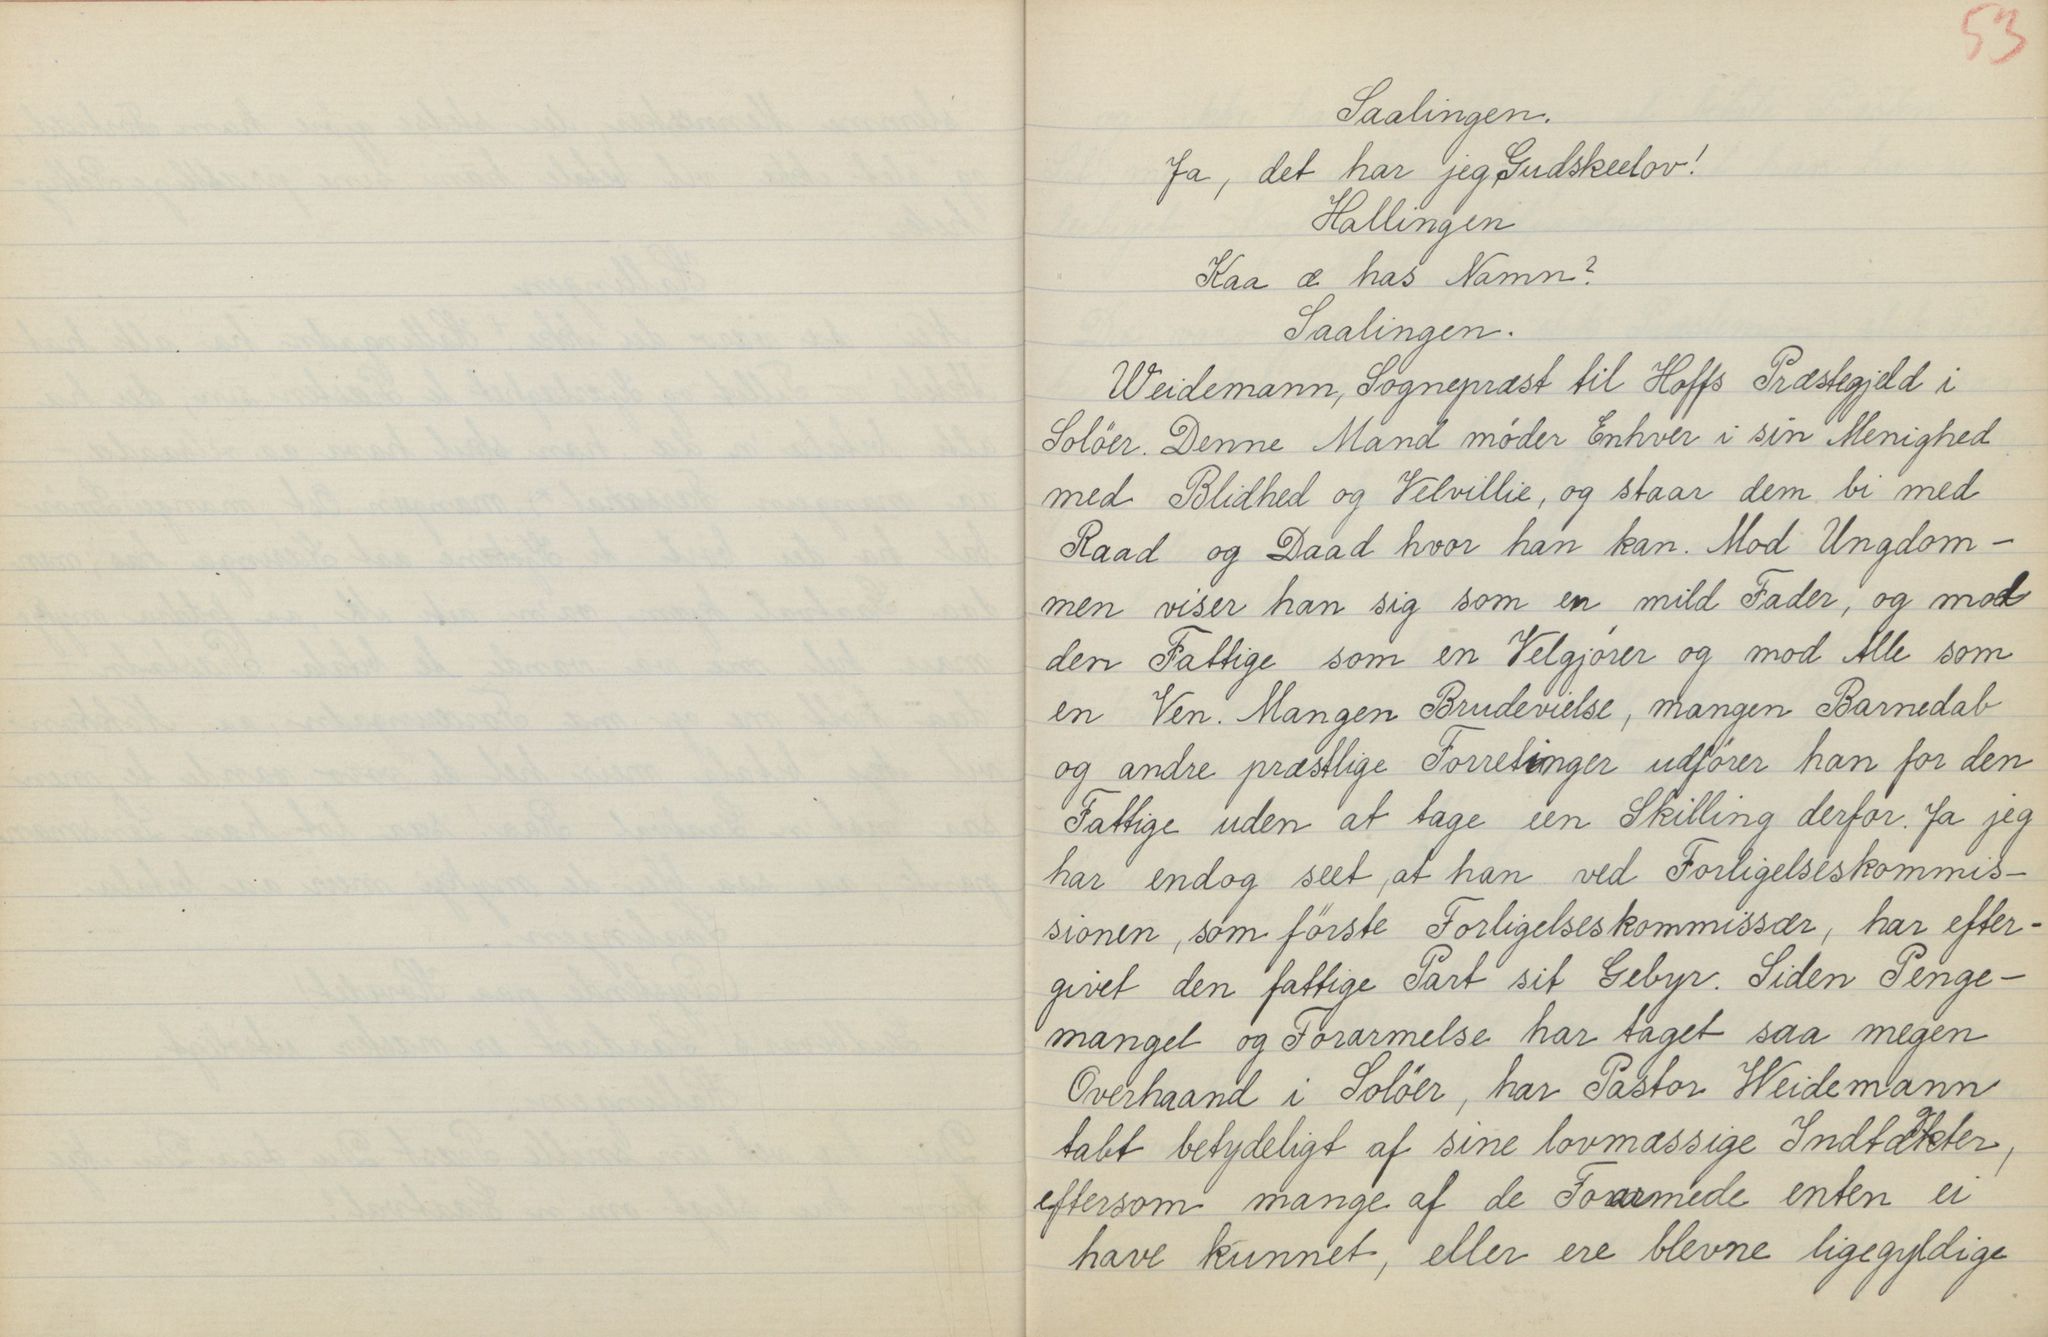 53
Saalingen.
Ja, det har jeg Gudskeelov!
Hallingen
Kaa æ has Namn?
Saalingen.
Weidemann, Sognepræst til Hoffs Præstegjeld i
Solöer. Denne Mand möder Enhver i sin Menighed
med Blidhed og Velvillie, og staar dem bi med
Raad og Daad hvor han kan. Mod Ungdom-
men viser han sig som en mild Fader, og mod
den Fattige som en Velgjörer og mod Alle som
en Ven. Mangen Brudevielse, mangen Barnedab
og andre præstlige Forretinger udförer han for den
Fattige uden at tage een Skilling derfor. Ja jeg
har endog seet, at han ved Forligelseskommis-
sionen, som förste Forligelseskommissær, har efter-
givet den fattige Part sit Gebyr. Siden Penge-
mangel og Forarmelse har taget saa megen
Overhaand i Solöer, har Pastor Weidemann
tabt betydeligt af sine lovmæssige Indtækter,
eftersom mange af de Forarmede enten ei
have kunnet, eller ere blevne ligegyldige